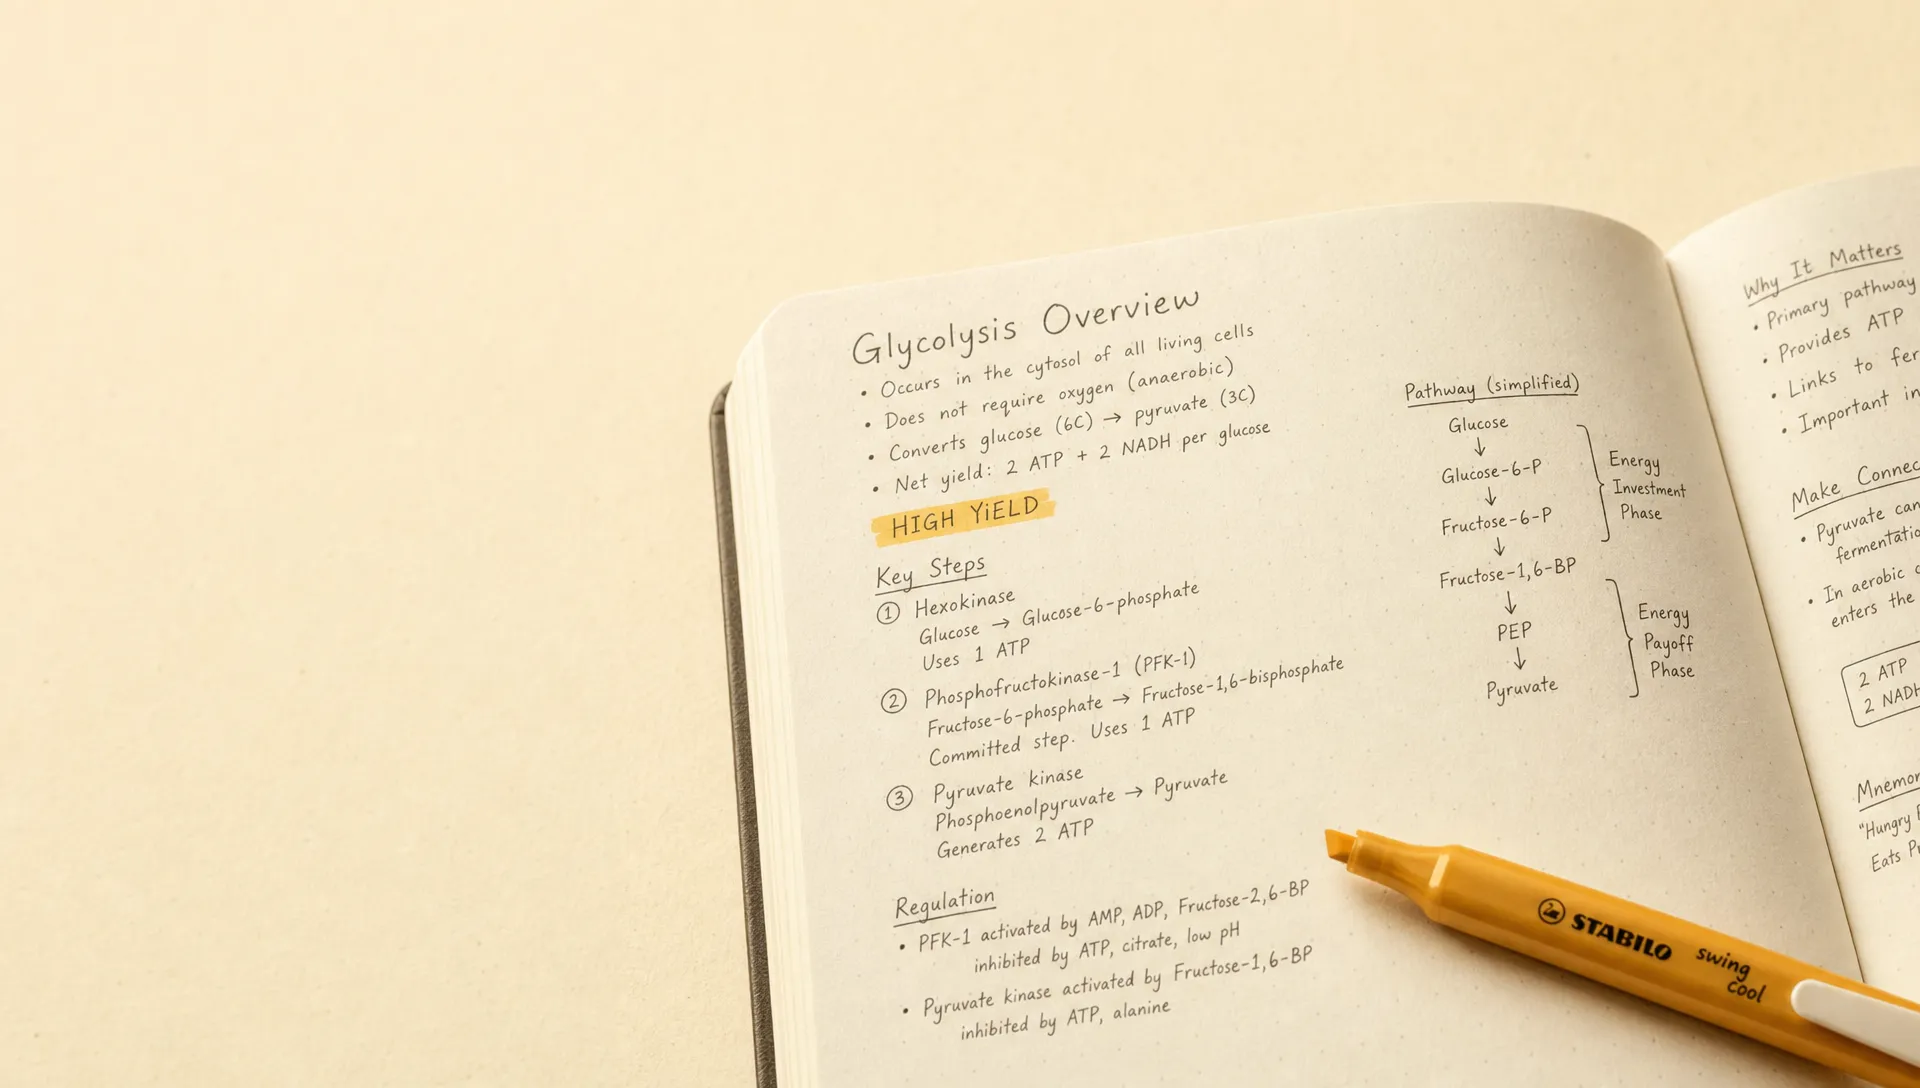 Glycolysis Overview
• Occurs in the cytosol of all living cells
• Does not require oxygen (anaerobic)
• Converts glucose (6C) → pyruvate (3C)
• Net yield: 2 ATP + 2 NADH per glucose
HIGH YiELD
Key Steps
① Hexokinase
Glucose → Glucose-6-phosphate
Uses 1 ATP
② Phosphofructokinase-1 (PFK-1)
Fructose-6-phosphate → Fructose-1,6-bisphosphate
Committed step. Uses 1 ATP
③ Pyruvate kinase
Phosphoenolpyruvate → Pyruvate
Generates 2 ATP
Regulation
• PFK-1 activated by AMP, ADP, Fructose-2,6-BP
inhibited by ATP, citrate, low pH
• Pyruvate kinase activated by Fructose-1,6-BP
inhibited by ATP, alanine
Pathway (simplified)
Glucose
↓
Glucose-6-P
↓
Fructose-6-P
↓
Fructose-1,6-BP
↓
PEP
↓
Pyruvate
Energy
Investment
Phase
Energy
Payoff
Phase
Why It Matters
• Primary pathway
• Provides ATP
• Links to
• Important in
Make
• Pyruvate can
• In aerobic
enters the
2 ATP
2 NADH
"Hungry
Eats
STABILO
swing
cool